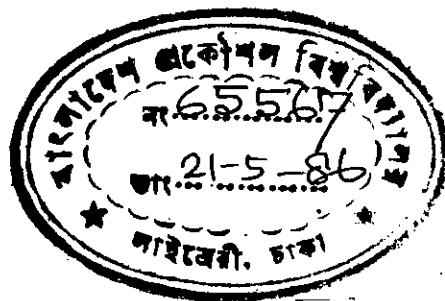 বাংলাদেশ প্রকৌশল বিশ্ববিদ্যালয়
নং 65567
তাং 21-5-86
লাইব্রেরী, ঢাকা